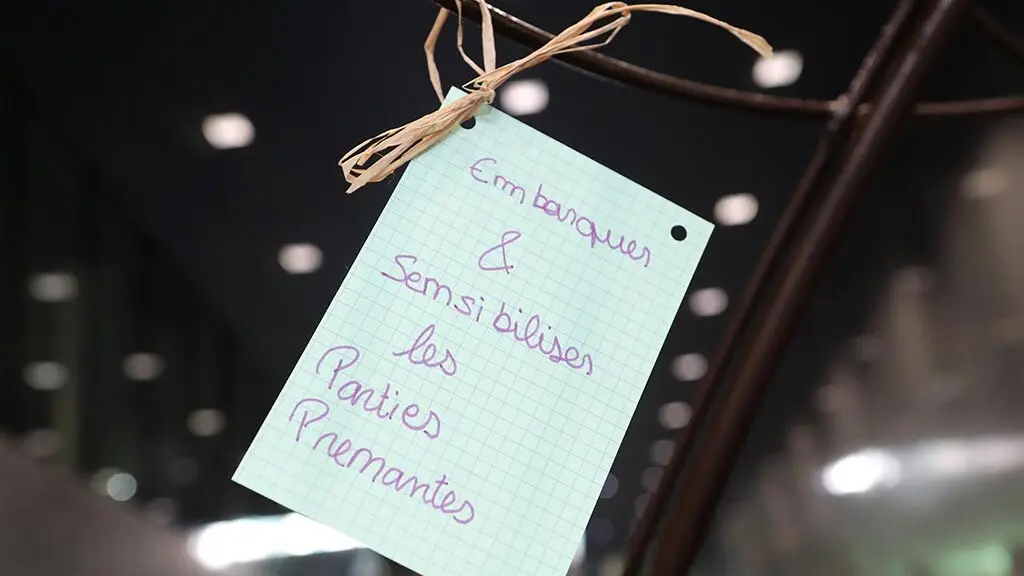 Embarquer
&
Sensibiliser
les
Parties
Prenantes